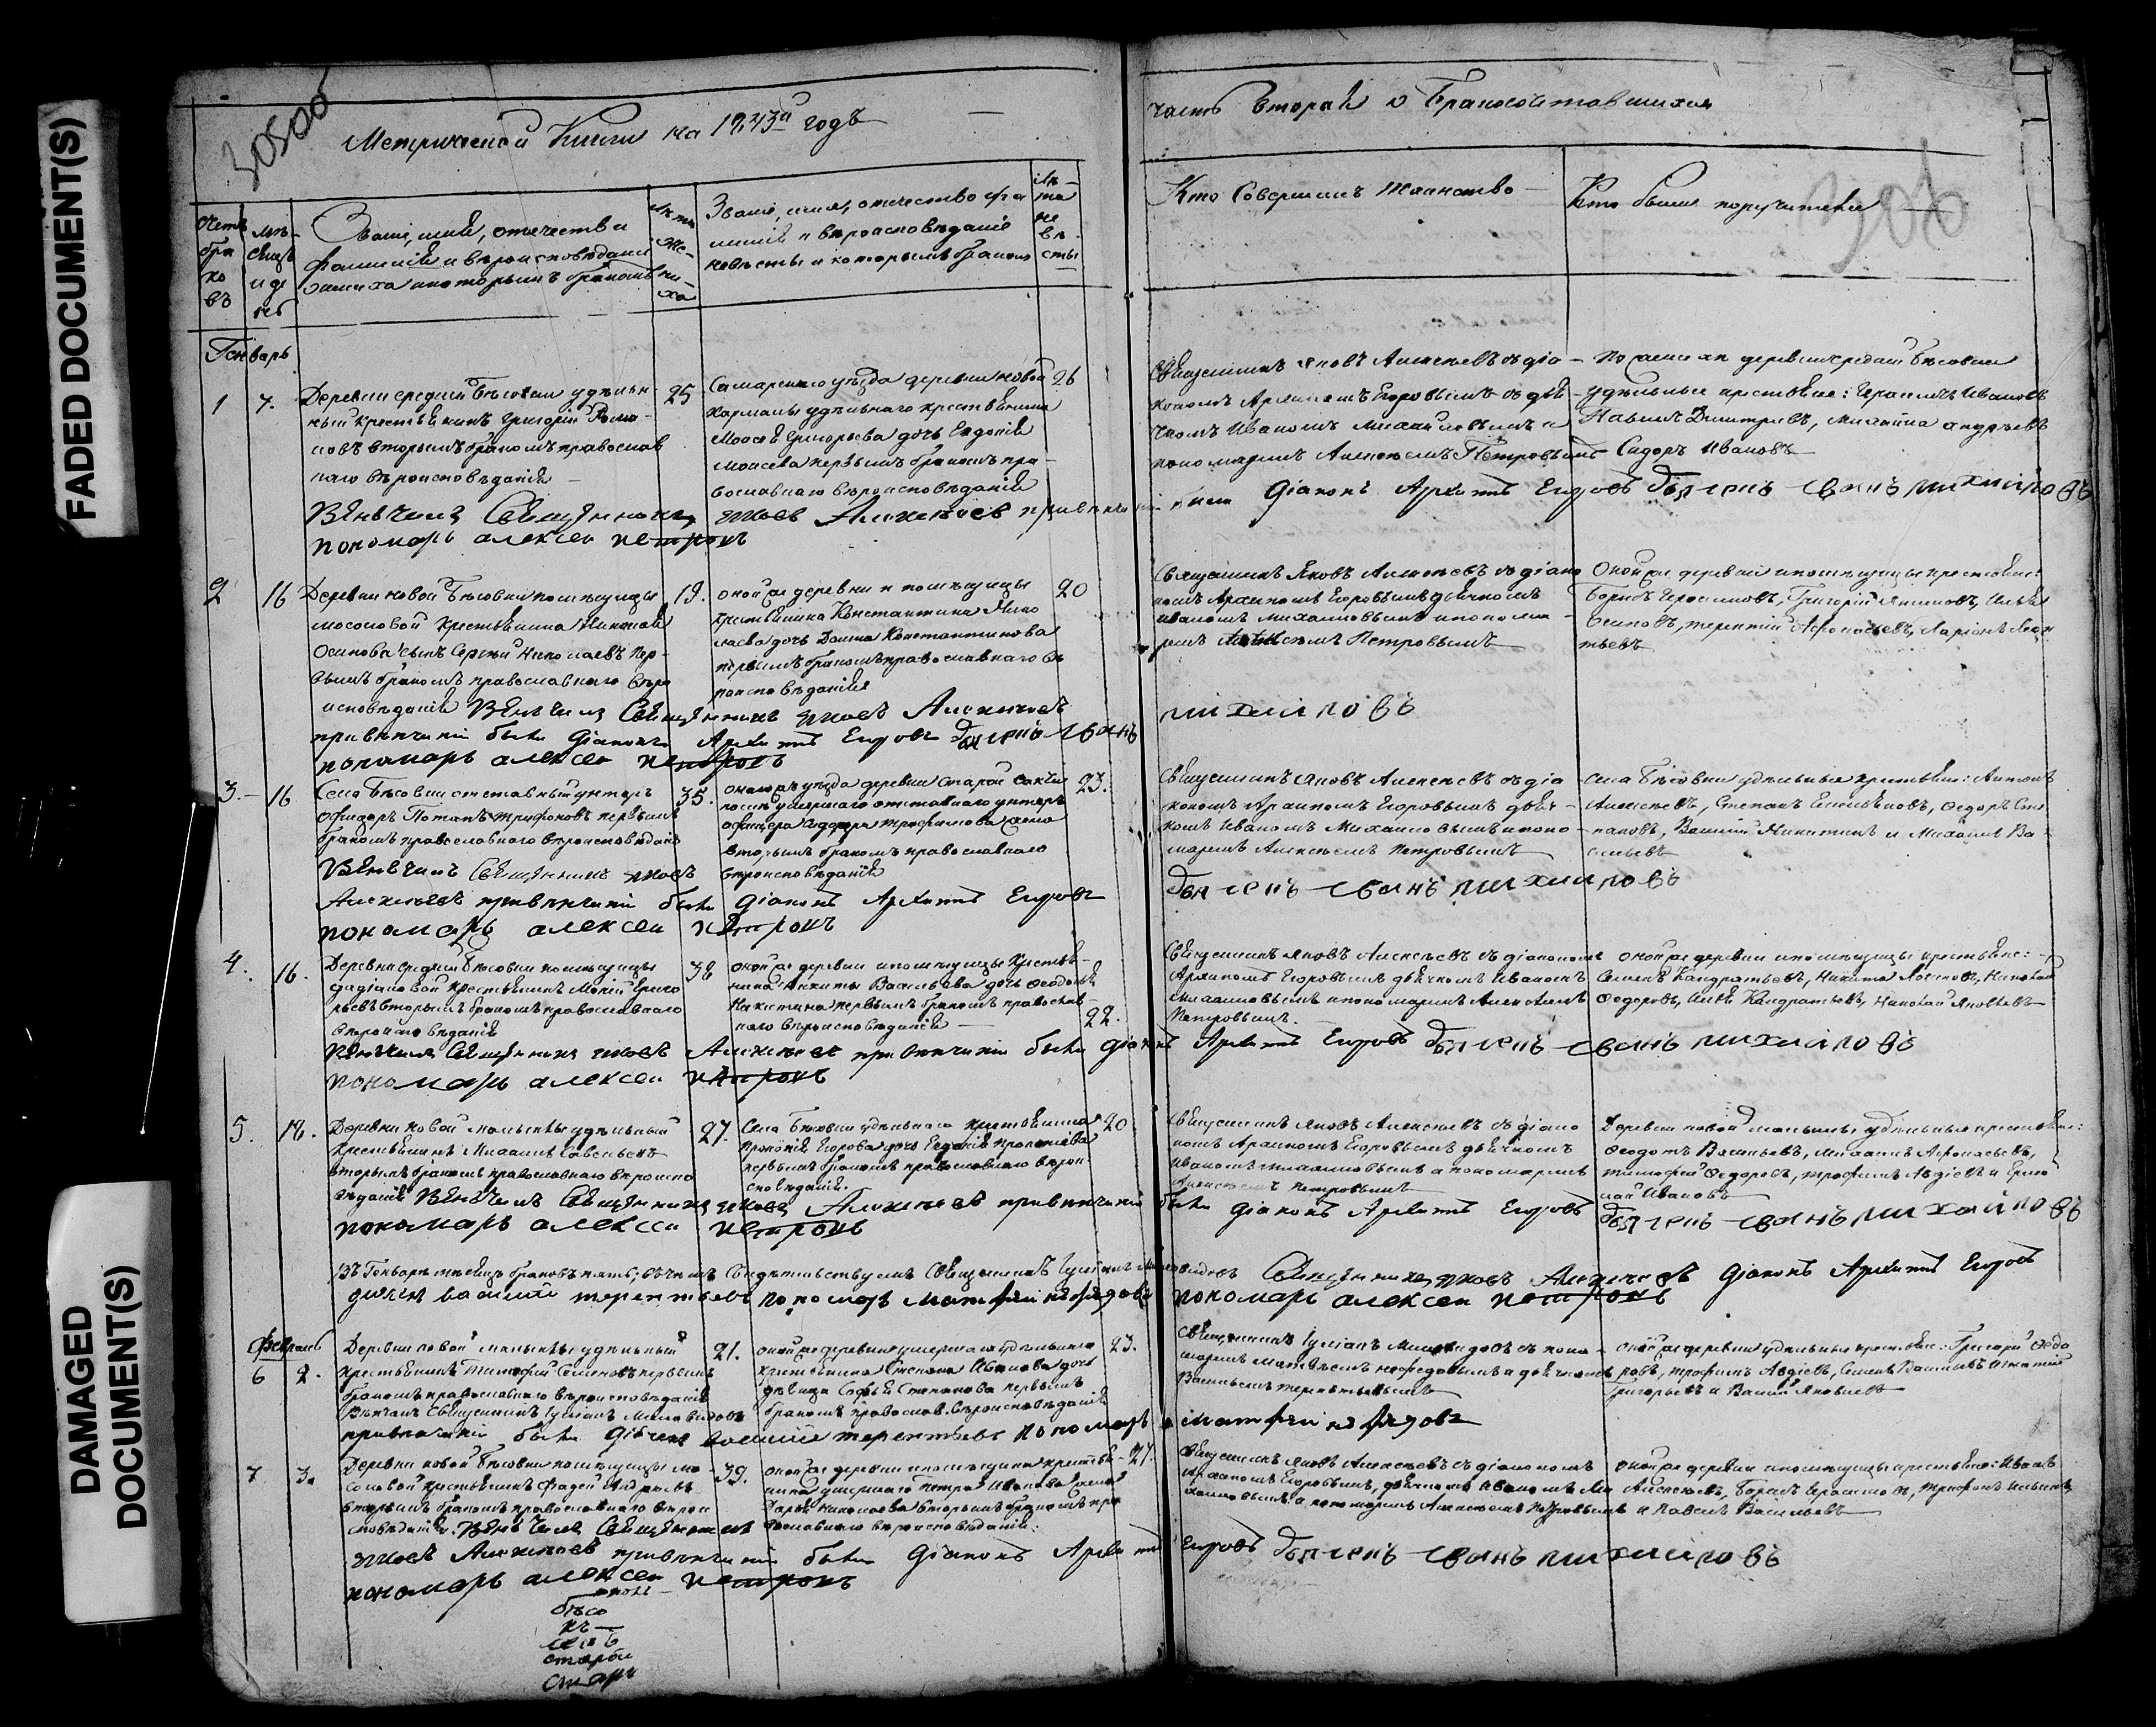 FADED DOCUMENT(S)
DAMAGED DOCUMENT(S)
305об
Метрической Книги на 1843й годъ
часть вторая о Бракосочетавшихся
306
Счетъ браковъ
мѣсяцъ и день
Званіе, имя, отечество
фамилія и вѣроисповѣданіе
жениха и которымъ бракомъ
лѣта жениха
Званіе, имя, отечество фа
милія и вѣроисповѣданіе
невѣсты и которымъ бракомъ
лѣта невѣсты
Кто Совершалъ таинство
Кто были поручители
Генварь
1 7. Деревни средней Бѣсовки удѣль
ный крестьянинъ Григорій Рома
новъ вторымъ бракомъ православ
наго вѣроисповѣданія
25
Самарскаго уѣзда деревни новой
Кармалы удѣльнаго крестьянина
Моисея Григорьева дочь Евдокія
Моисева первымъ бракомъ пра
вославнаго вѣроисповѣданія
26
Священникъ Яковъ Алексѣевъ съ діа
кономъ Архипомъ Егоровымъ съ дья
чкомъ Иваномъ Михайловымъ и
пономаремъ Алексѣемъ Петровымъ
деревни средней Бѣсовки
удѣльные крестьяне: Иванъ Ивановъ
Димитріевъ, Михайла Андреевъ
Сидоръ Ивановъ
Вѣнчалъ Священникъ Яковъ Алексѣевъ при вѣнчаніи были Діаконъ Архипъ Егоровъ дьячекъ Иванъ Михайловъ
пономарь алексеи петровъ
2 16 Деревни новой Бѣсовки помѣщицы
Мосоловой крестьянина Николая
Осипова сынъ Сергѣй Николаевъ пер
вымъ бракомъ православнаго вѣро
исповѣданія
19.
оной же деревни и помѣщицы
крестьянина Константина Нико
лаева дочь Домна Константинова
первымъ бракомъ православнаго вѣ
роисповѣданія
20
Священникъ Яковъ Алексѣевъ съ діако
номъ Архипомъ Егоровымъ дьячкомъ
Иваномъ Михайловымъ и понома
ремъ Алексѣемъ Петровымъ
Оной же деревни и помѣщицы крестьяне:
Борисъ Григорій Илья
Осиповъ, Терентій Афонасьевъ, Ларіонъ
Вѣнчалъ Священникъ Яковъ Алексѣевъ
при вѣнчаніи были Діаконъ Архипъ Егоровъ дьячекъ Иванъ михайловъ
пономарь алексеи петровъ
3. 16 Села Бѣсовки отставный унтеръ
офицеръ Потапъ Трифоновъ первымъ
бракомъ православнаго вѣроисповѣданія
35.
онаго жъ уѣзда деревни Старой
умершаго отставнаго унтеръ
офицера Трофимова жена
вторымъ бракомъ православнаго
вѣроисповѣданія
23.
Священникъ Яковъ Алексѣевъ съ діа
кономъ Архипомъ Егоровымъ дьяч
комъ Иваномъ Михайловымъ и поно
маремъ Алексѣемъ Петровымъ
Села Бѣсовки удѣльные крестьяне: Антонъ
Алексѣевъ, Степанъ Емельяновъ, Федоръ Сте
пановъ, Василій Никитинъ и Михайла Ва
сильевъ
Вѣнчалъ Священникъ Яковъ
Алексѣевъ при вѣнчаніи были Діаконъ Архипъ Егоровъ дьячекъ Иванъ михайловъ
пономарь алексеи петровъ
4. 16. Деревни средней Бѣсовки помѣщицы
крестьянинъ Мокій Григо
рьевъ вторымъ бракомъ православнаго
вѣроисповѣданія
38
оной же деревни и помѣщицы крестья
нина Никиты Васильева дочь Феодосья
Никитина первымъ бракомъ православ
наго вѣроисповѣданія
22.
Священникъ Яковъ Алексѣевъ съ діакономъ
Архипомъ Егоровымъ дьячкомъ Иваномъ
Михайловымъ и пономаремъ Алексѣемъ
Петровымъ
оной же деревни и помѣщицы крестьяне:
Семенъ Кандратьевъ, Никита Николай
Федоровъ, Илья Кандратьевъ, Николай Яковлевъ
Вѣнчалъ Священникъ Яковъ Алексѣевъ при вѣнчаніи были Діаконъ Архипъ Егоровъ дьячекъ Иванъ михайловъ
пономарь алексеи петровъ
5. 18. Деревни новой Малыклы удѣльный
крестьянинъ Михайла Савельевъ
вторымъ бракомъ православнаго вѣроиспо
вѣданія
27.
Села Бѣсовки удѣльнаго крестьянина
Прокопія Егорова дочь Евдокія Прокопьева
первымъ бракомъ православнаго вѣрои
сповѣданія.
20
Священникъ Яковъ Алексѣевъ съ діако
номъ Архипомъ Егоровымъ дьячкомъ
Иваномъ Михайловымъ и пономаремъ
Алексѣемъ Петровымъ
Деревни новой Малыклы удѣльные крестьяне:
Федотъ Васильевъ, Михайла Афонасьевъ,
Тимофей Федоровъ, Трофимъ Авдѣевъ и Ермо
лай Ивановъ
Вѣнчалъ Священникъ Яковъ Алексѣевъ при вѣнчаніи были Діаконъ Архипъ Егоровъ дьячекъ Иванъ михайловъ
пономарь алексеи петровъ
Въ Генварѣ мѣсяцѣ браковъ пять, въ чемъ свидѣтельствуемъ Священникъ Іуліанъ Миловидовъ Священникъ Яковъ Алексѣевъ Діаконъ Архипъ Егоровъ
дьячекъ василии терентьевъ пономарь матфеи нефедовъ пономарь алексеи петровъ
Февраль
6 2. Деревни новой Малыклы удѣльный
крестьянинъ Тимофей Семеновъ первымъ
бракомъ православнаго вѣроисповѣданія
Вѣнчалъ Священникъ Іуліанъ Миловидовъ
21.
оной же деревни умершаго удѣльнаго
крестьянина Степана Иванова дочь
дѣвица Софья Степанова первымъ
бракомъ православ. вѣроисповѣданія
23.
Священникъ Іуліанъ Миловидовъ съ поно
маремъ Матвѣемъ Нефедовымъ и дьячкомъ
Васильемъ Терентьевымъ
оной же деревни удѣльные крестьяне: Григорій Федо
ровъ, Трофимъ Авдѣевъ, Семенъ Игнатій
Григорьевъ и Василій Яковлевъ
при вѣнчаніи были дьячекъ василии терентьевъ пономарь матфеи нефедовъ
7 3. Деревни новой Бѣсовки помѣщицы Мо
соловой крестьянинъ Фадей Андреевъ
вторымъ бракомъ православнаго вѣрои
сповѣданія.
39.
оной же деревни и помѣщицы крестья
нина умершаго Петра Иванова жена
Дарья Николаева вторымъ бракомъ пра
вославнаго вѣроисповѣданія:
27.
Священникъ Яковъ Алексѣевъ съ діакономъ
Архипомъ Егоровымъ, дьячкомъ Иваномъ Ми
хайловымъ и пономаремъ Алексѣемъ Петровымъ
оной же деревни и помѣщицы крестьяне: Иванъ
Алексѣевъ, Борисъ Трифонъ Ильинъ
и Павелъ Васильевъ
Вѣнчалъ Священникъ
Яковъ Алексѣевъ при вѣнчаніи были Діаконъ Архипъ Егоровъ дьячекъ Иванъ михайловъ
пономарь алексеи петровъ
бѣсо
старои